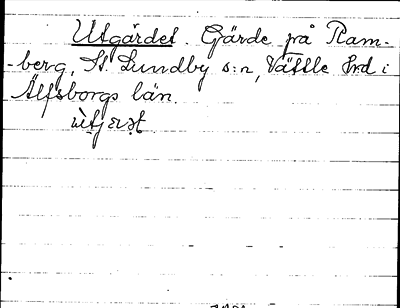 Utgärdet. Gärde på Ram-
-berg, St. Lundby s:n, Vättle hrd i
Älfsborgs län.